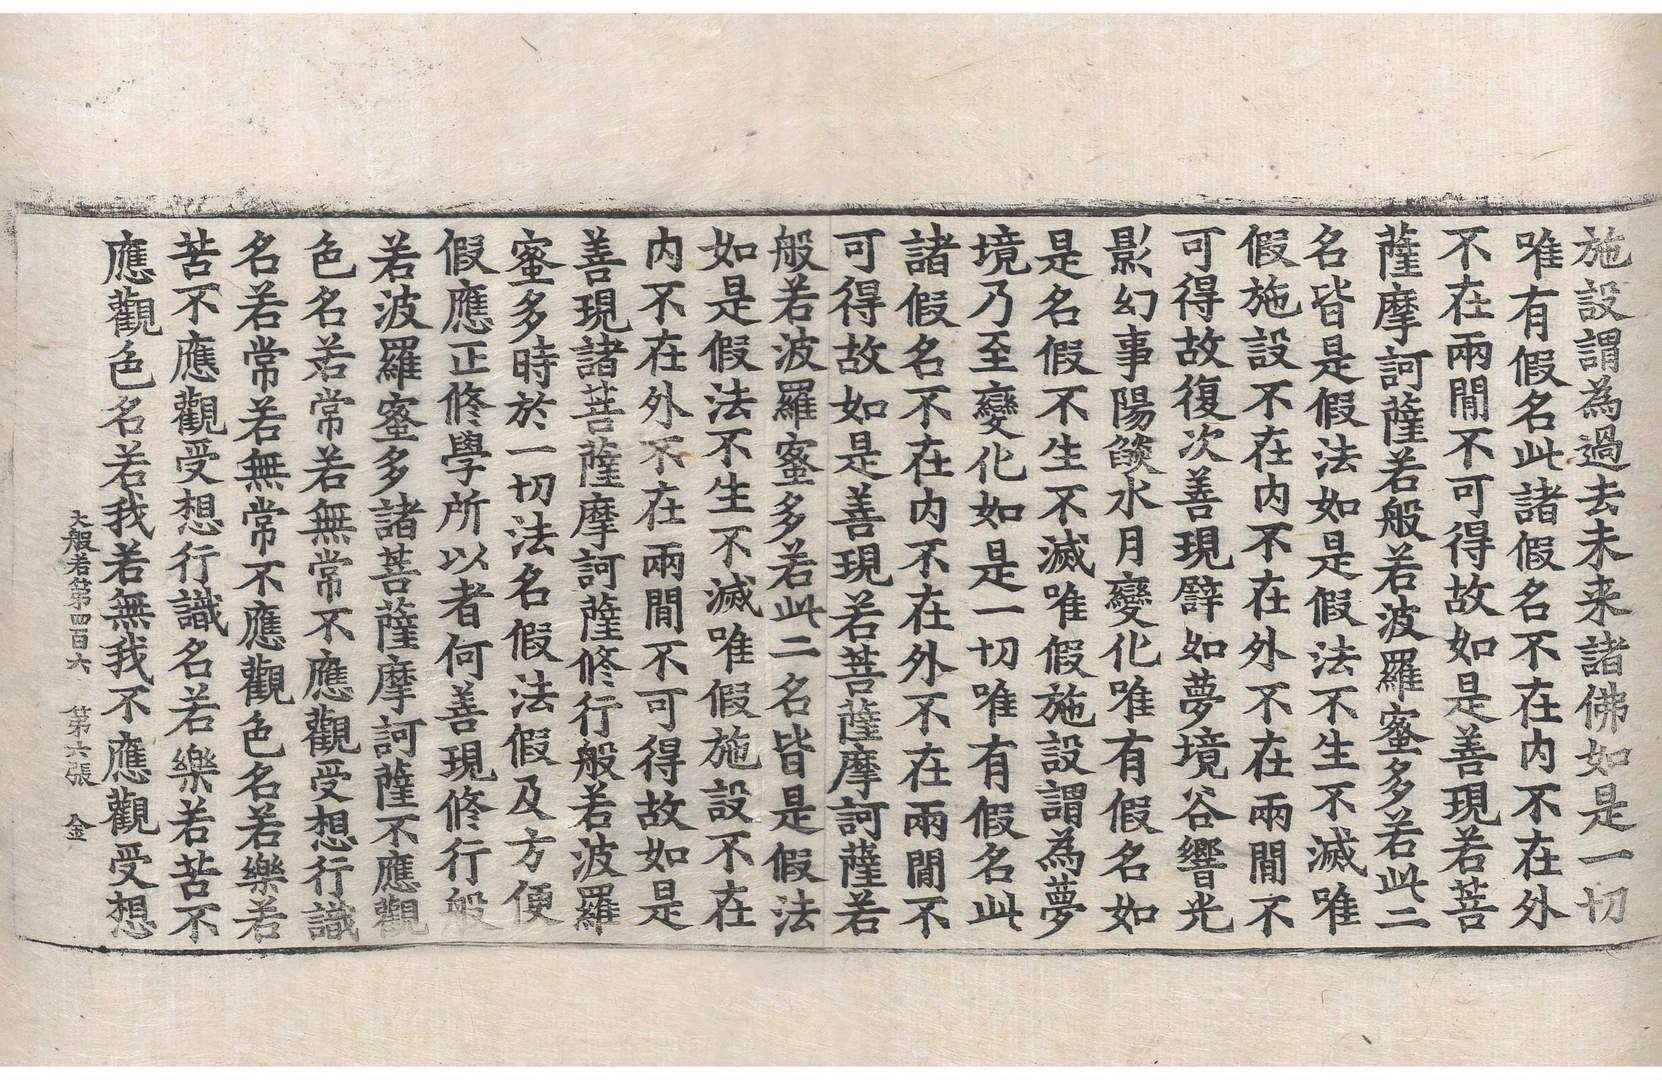 施設謂為過去未来諸佛如是一切
唯有假名此諸假名不在内不在外
不在兩間不可得故如是善現若菩
薩摩訶薩若般若波羅蜜多若此二
名皆是假法如是假法不生不滅唯
假施設不在内不在外不在兩間不
可得故復次善現譬如夢境谷響光
影幻事陽燄水月變化唯有假名如
是名假不生不滅唯假施設謂為夢
境乃至變化如是一切唯有假名此
諸假名不在内不在外不在兩間不
可得故如是善現若菩薩摩訶薩若
般若波羅蜜多若此二名皆是假法
如是假法不生不滅唯假施設不在
内不在外不在兩間不可得故如是
善現諸菩薩摩訶薩修行般若波羅
蜜多時於一切法名假法假及方便
假應正修學所以者何善現修行般
若波羅蜜多諸菩薩摩訶薩不應觀
色名若常若無常不應觀受想行識
名若常若無常不應觀色名若樂若
苦不應觀受想行識名若樂若苦不
應觀色名若我若無我不應觀受想
大般若第四百六 第六張 金